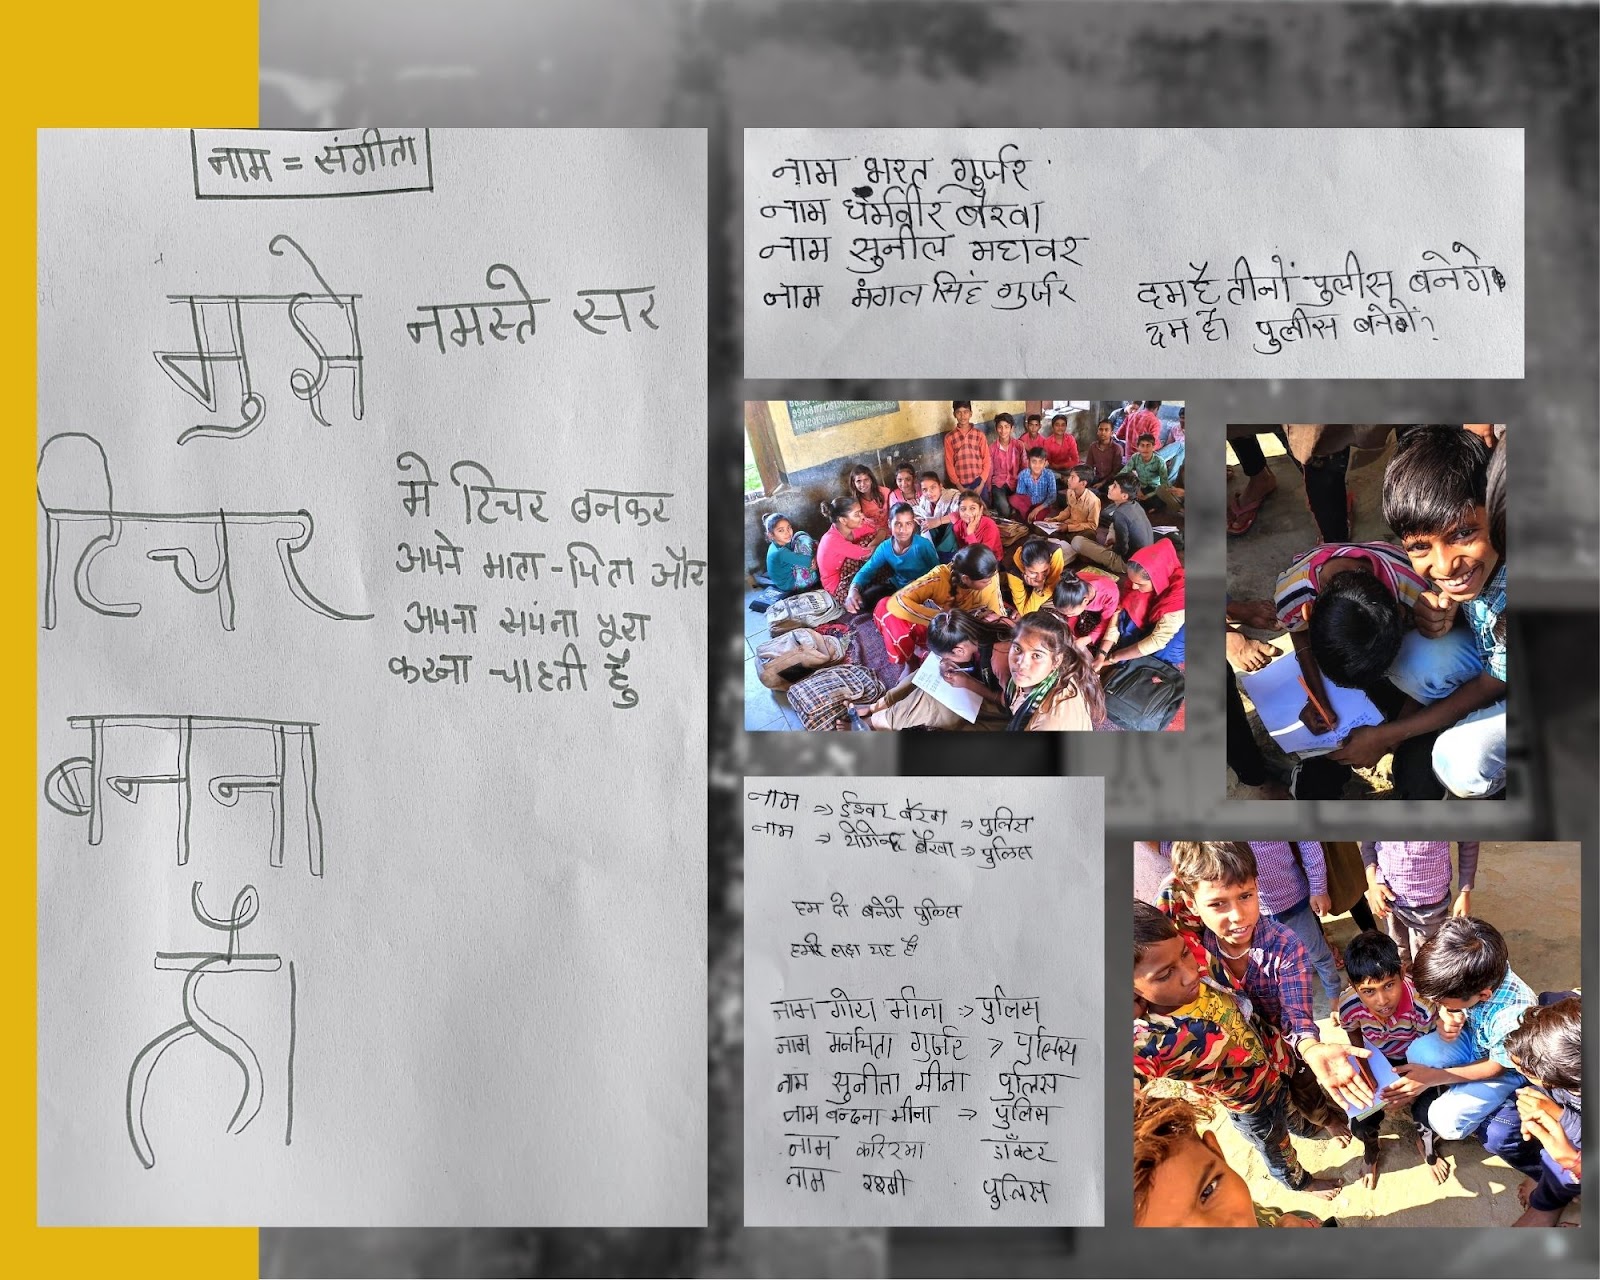 नाम = संगीता
मुझे
नमस्ते सर
टिचर
मे टिचर बनकर
अपने माता-पिता और
अपना सपंना पूरा
करना चाहती हुँ
बनना
हाँ
नाम भरत गुर्जर
नाम धर्मवीर बैरवा
नाम सुनील महावर
नाम मंगल सिंह गुर्जर
तीनों पुलीस बनेगे
पुलीस बनेगें?
नाम ⇒ ईश्वर बैरवा ⇒ पुलिस
नाम ⇒ योगेन्द्र बैरवा ⇒ पुलिस
हम दो बनेगे पुलिस
यह है
नाम मीना ⇒ पुलिस
नाम गुर्जर ⇒ पुलिस
नाम सुनीता मीना पुलिस
नाम बन्दना मीना ⇒ पुलिस
नाम करिश्मा डॉक्टर
नाम रश्मी पुलिस